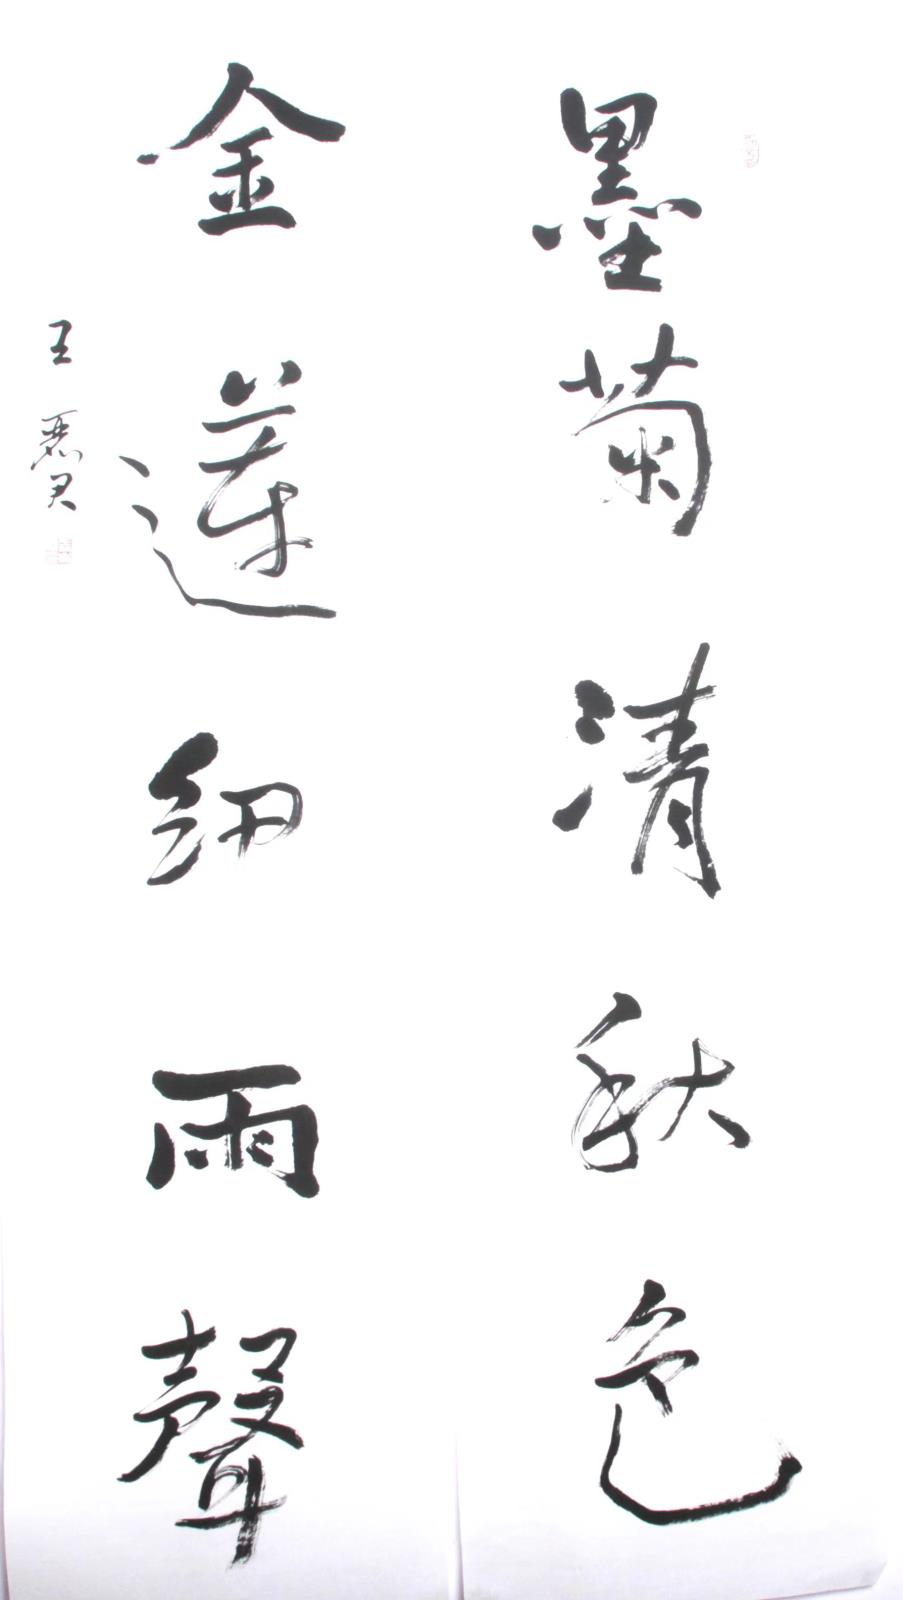 墨菊清秋色
金蓮細雨聲
王